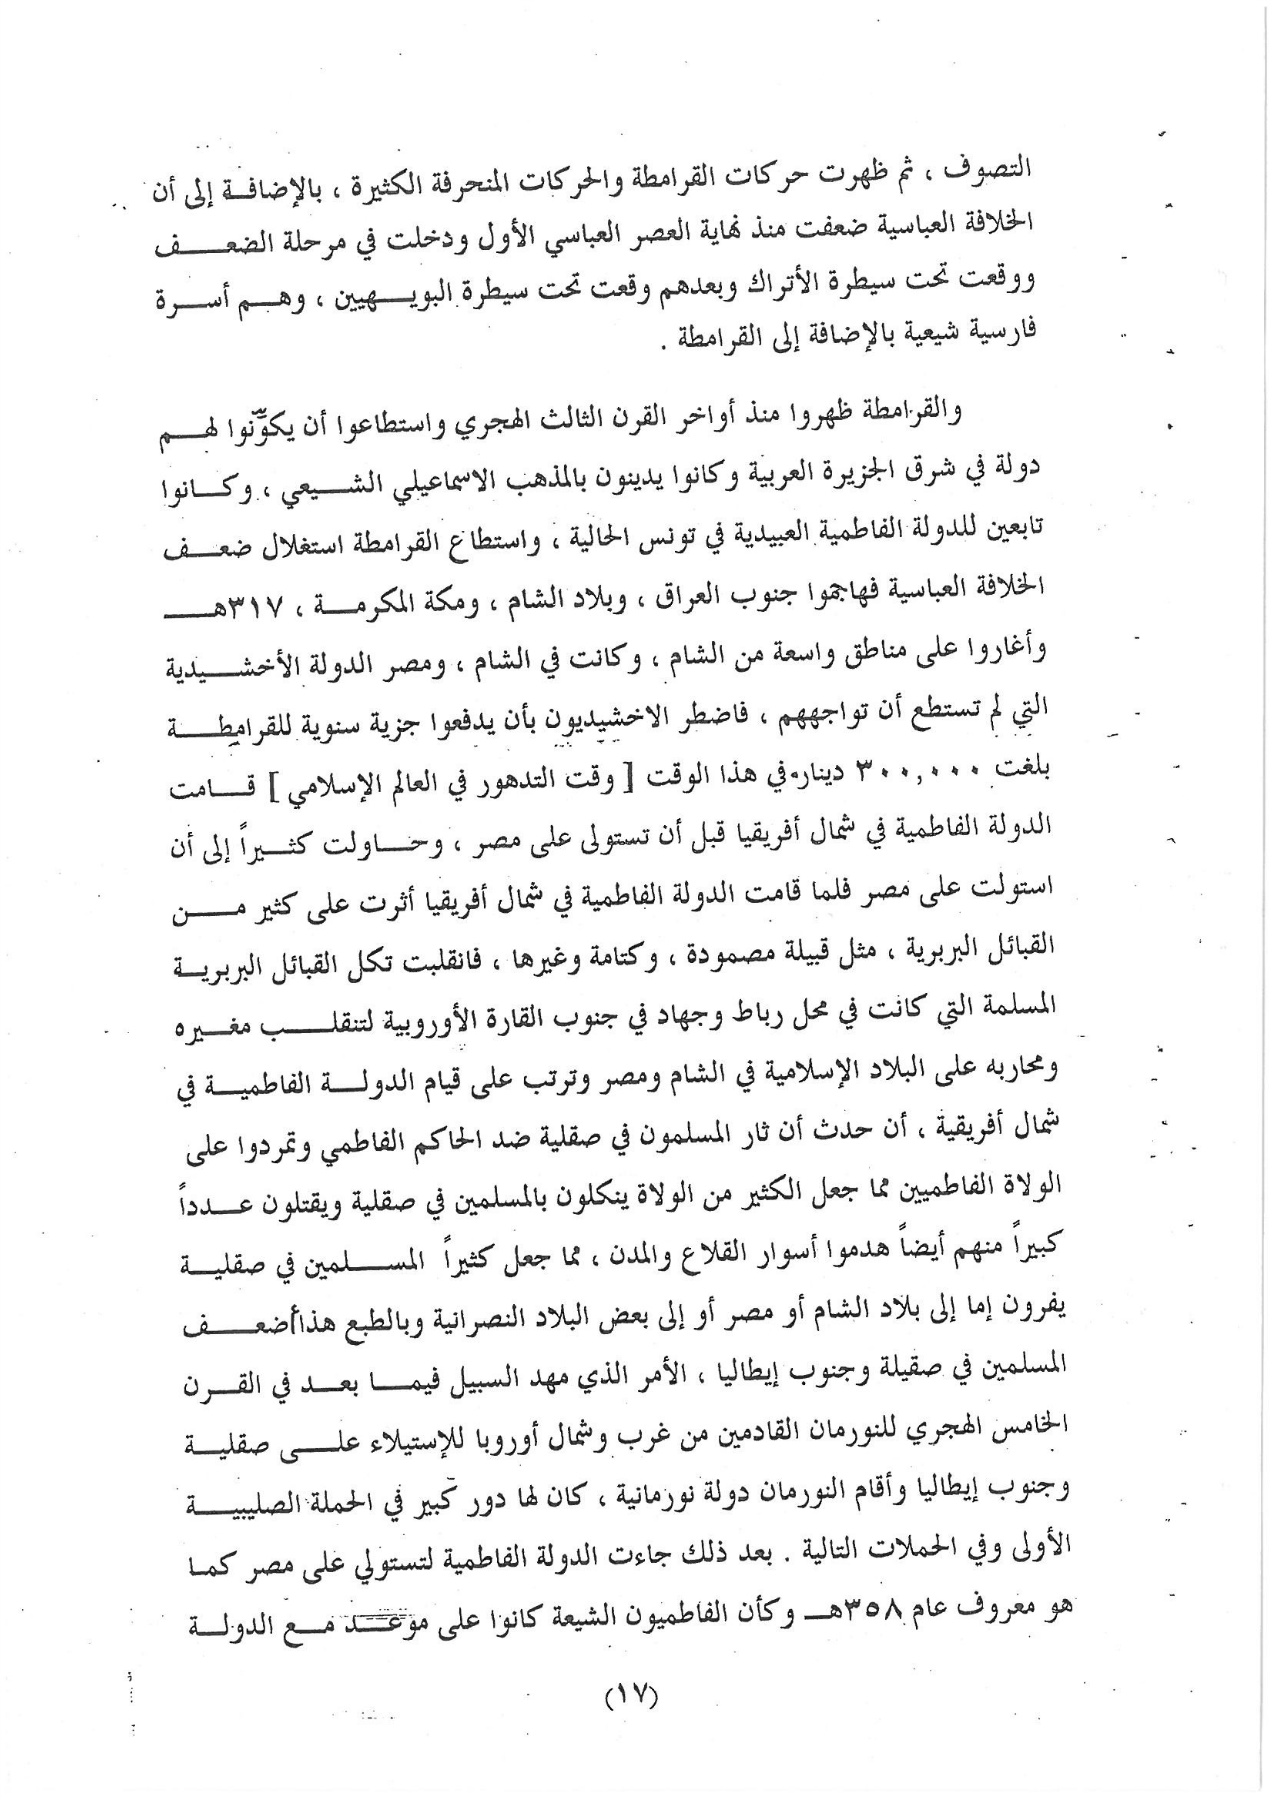 التصوف ، ثم ظهرت حركات القرامطة والحركات المنحرفة الكثيرة ، بالإضافة إلى أن
الخلافة العباسية ضعفت منذ نهاية العصر العباسي الأول ودخلت في مرحلة الضعف
ووقعت تحت سيطرة الأتراك وبعدهم وقعت تحت سيطرة البويهيين ، وهم أسرة
فارسية شيعية بالإضافة إلى القرامطة .
والقرامطة ظهروا منذ أواخر القرن الثالث الهجري واستطاعوا أن يكوّنوا لهم
دولة في شرق الجزيرة العربية وكانوا يدينون بالمذهب الاسماعيلي الشيعي ، وكانوا
تابعين للدولة الفاطمية العبيدية في تونس الحالية ، واستطاع القرامطة استغلال ضعف
الخلافة العباسية فهاجموا جنوب العراق ، وبلاد الشام ، ومكة المكرمة ، ٣١٧هـ
وأغاروا على مناطق واسعة من الشام ، وكانت في الشام ، ومصر الدولة الأخشيدية
التي لم تستطع أن تواجههم ، فاضطر الاخشيديون بأن يدفعوا جزية سنوية للقرامطة
بلغت ٣٠٠,٠٠٠ دينار في هذا الوقت [ وقت التدهور في العالم الإسلامي ] قامت
الدولة الفاطمية في شمال أفريقيا قبل أن تستولى على مصر ، وحاولت كثيراً إلى أن
استولت على مصر فلما قامت الدولة الفاطمية في شمال أفريقيا أثرت على كثير من
القبائل البربرية ، مثل قبيلة مصمودة ، وكتامة وغيرها ، فانقلبت تكل القبائل البربرية
المسلمة التي كانت في محل رباط وجهاد في جنوب القارة الأوروبية لتنقلب مغيره
ومحاربه على البلاد الإسلامية في الشام ومصر وترتب على قيام الدولة الفاطمية في
شمال أفريقية ، أن حدث أن ثار المسلمون في صقلية ضد الحاكم الفاطمي وتمردوا على
الولاة الفاطميين مما جعل الكثير من الولاة ينكلون بالمسلمين في صقلية ويقتلون عدداً
كبيراً منهم أيضاً هدموا أسوار القلاع والمدن ، مما جعل كثيراً المسلمين في صقلية
يفرون إما إلى بلاد الشام أو مصر أو إلى بعض البلاد النصرانية وبالطبع هذا أضعف
المسلمين في صقيلة وجنوب إيطاليا ، الأمر الذي مهد السبيل فيما بعد في القرن
الخامس الهجري للنورمان القادمين من غرب وشمال أوروبا للإستيلاء على صقلية
وجنوب إيطاليا وأقام النورمان دولة نورمانية ، كان لها دور كبير في الحملة الصليبية
الأولى وفي الحملات التالية . بعد ذلك جاءت الدولة الفاطمية لتستولي على مصر كما
هو معروف عام ٣٥٨هـ وكأن الفاطميون الشيعة كانوا على موعد مع الدولة
(١٧)